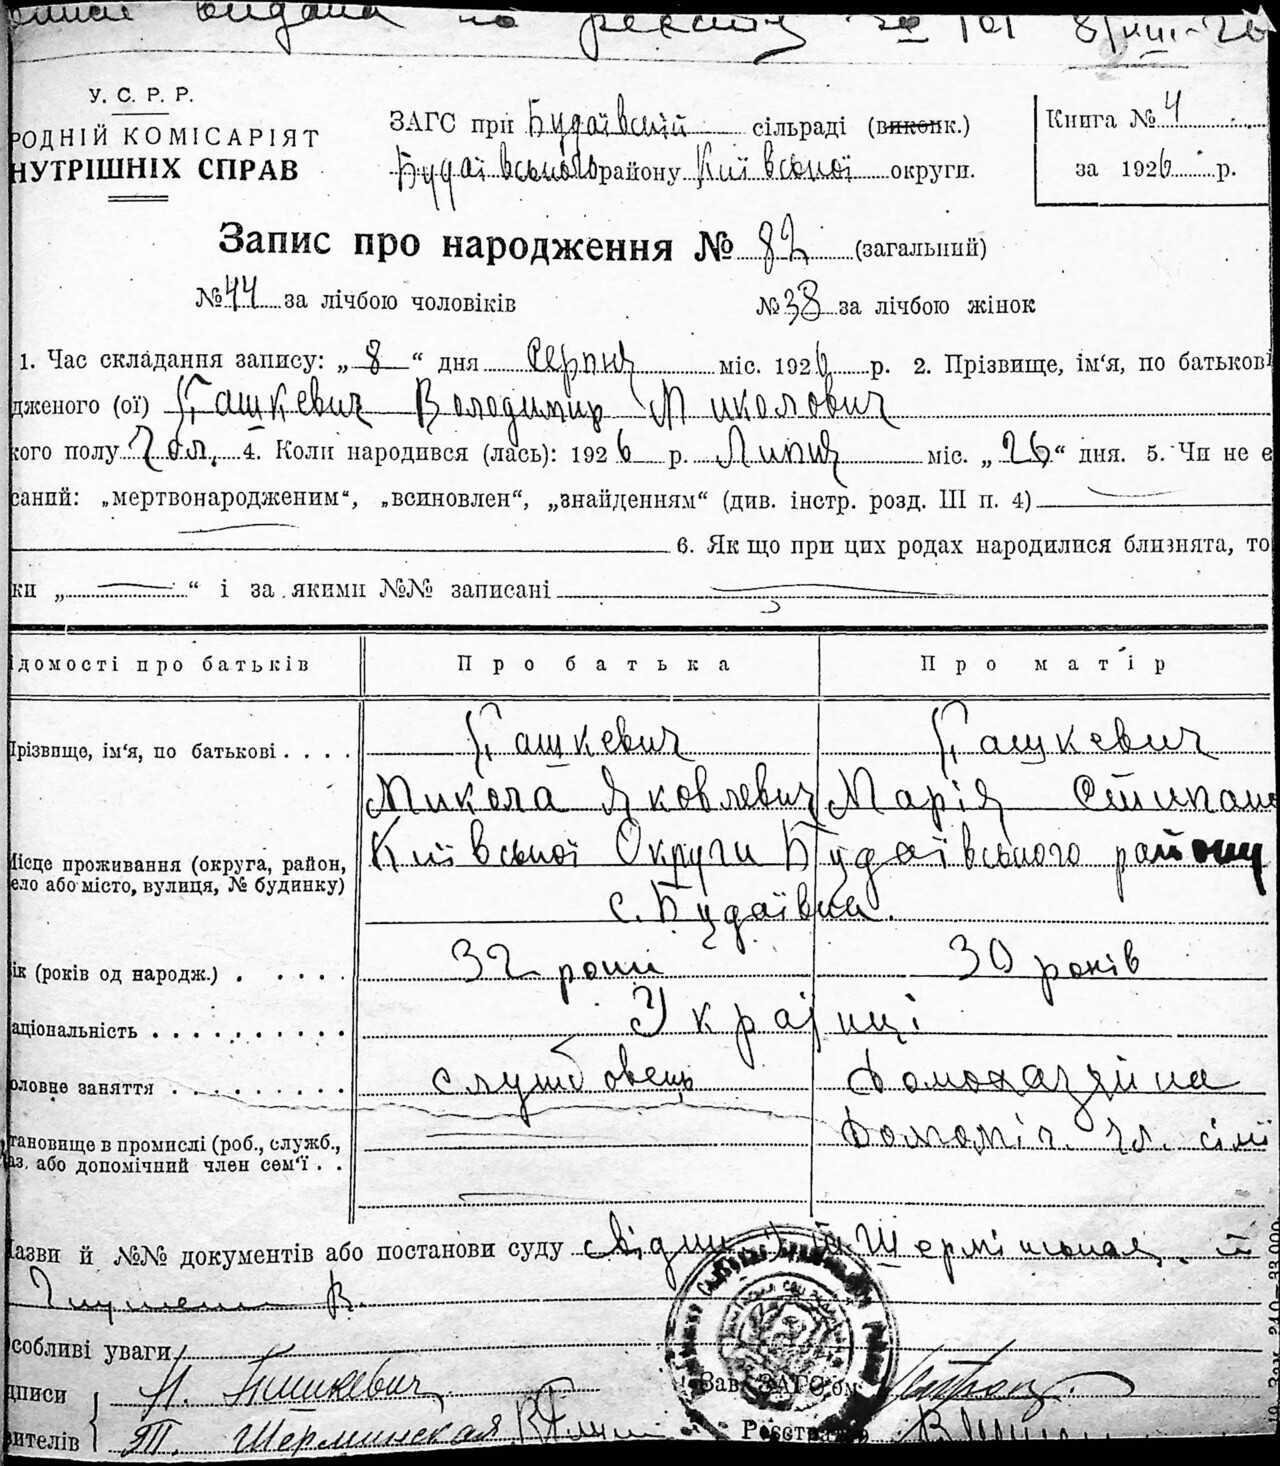 видана на
У. С. Р. Р.
РОДНІЙ КОМІСАРІЯТ
НУТРІШНІХ СПРАВ
ЗАГС при Будаївській сільраді (виконк.)
Будаївського району Київської округи.
Книга № 4
за 1926 р.
Запис про народження № 82 (загальний)
№ 44 за лічбою чоловіків № 38 за лічбою жінок
1. Час складання запису: „ 8 “ дня Серпня міс. 1926 р. 2. Прізвище, ім‘я, по батькові
дженого (ої) Гашкевич Володимир Миколович
кого полу Чол. 4. Коли народився (лась): 1926 р. Липня міс. „ 26 “ дня. 5. Чи не є
саний: „мертвонародженим“, „всиновлен“, „знайденням“ (див. інстр. розд. III п. 4)
6. Як що при цих родах народилися близнята, то
ки „ “ і за якими №№ записані
ідомості про батьків Про батька Про матір
Прізвище, ім‘я, по батькові . . . . Гашкевич Гашкевич
Микола Яковлевич Марія Степано
Місце проживання (округа, район, Київської Округи Будаївського району
ело або місто, вулиця, № будинку) с. Будаївка.
ік (років од народж.) . . . . . 32 роки 30 років
аціональність . . . . . . . . . . Українці
оловне заняття . . . . . . . . службовець Домохазяйка
тановище в промислі (роб., служб., Допоміч. чл. сімї
аз. або допомічний член сем‘ї . .
Назви й №№ документів або постанови суду свідки Шермінська й
В.
собливі уваги
дписи Зав. ЗАГС‘ом
вителів Т. Шерминская Реєстратор